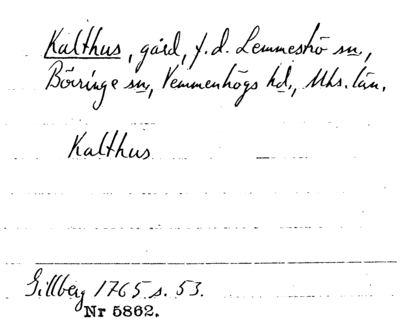 Kalthus, gård, f.d. Lemmeströ sn,
Börringe sn, Vemmenhögs hd., Mhs. län.
Kalthus
Gillberg 1765 s. 53.
Nr 5862.